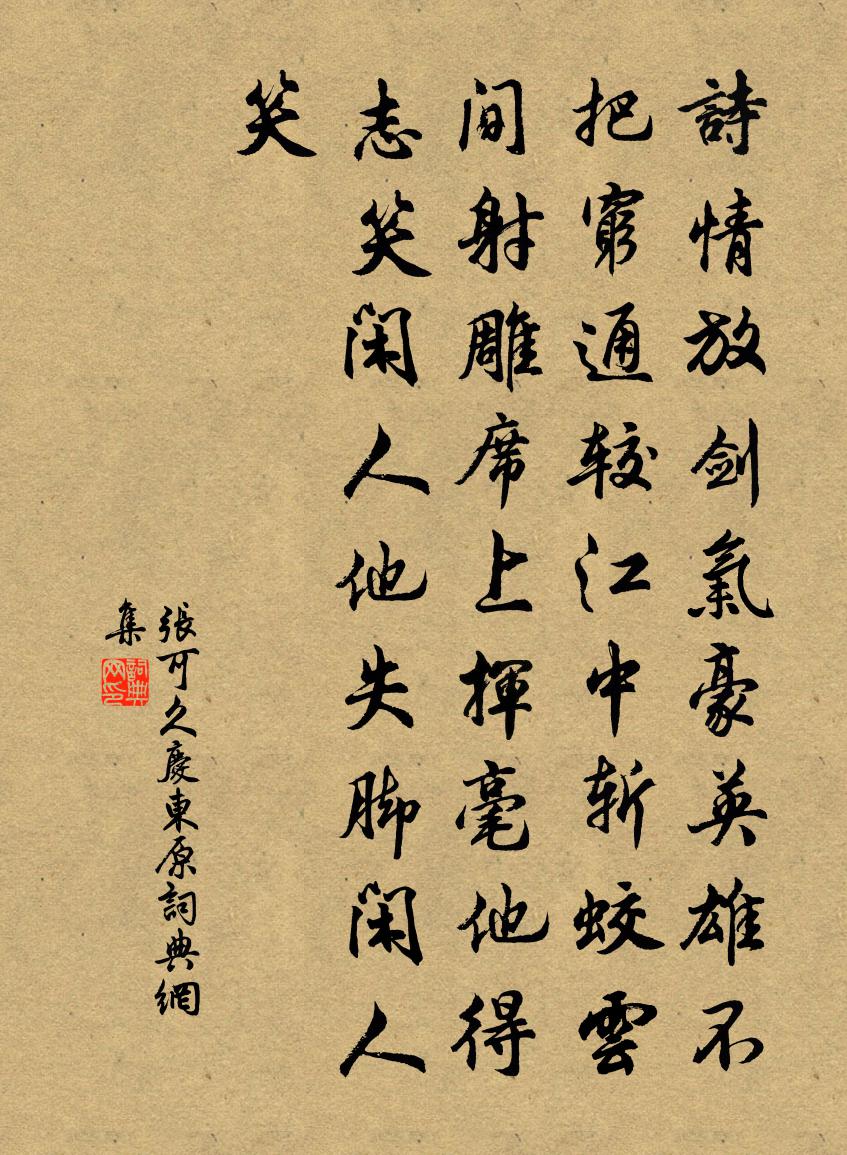 詩情放剑氣豪英雄不
把窮通較江中斬蛟雲
间射雕席上揮毫他得
志笑闲人他失脚闲人
笑
張可久慶東原詞典網
集
詞典网印